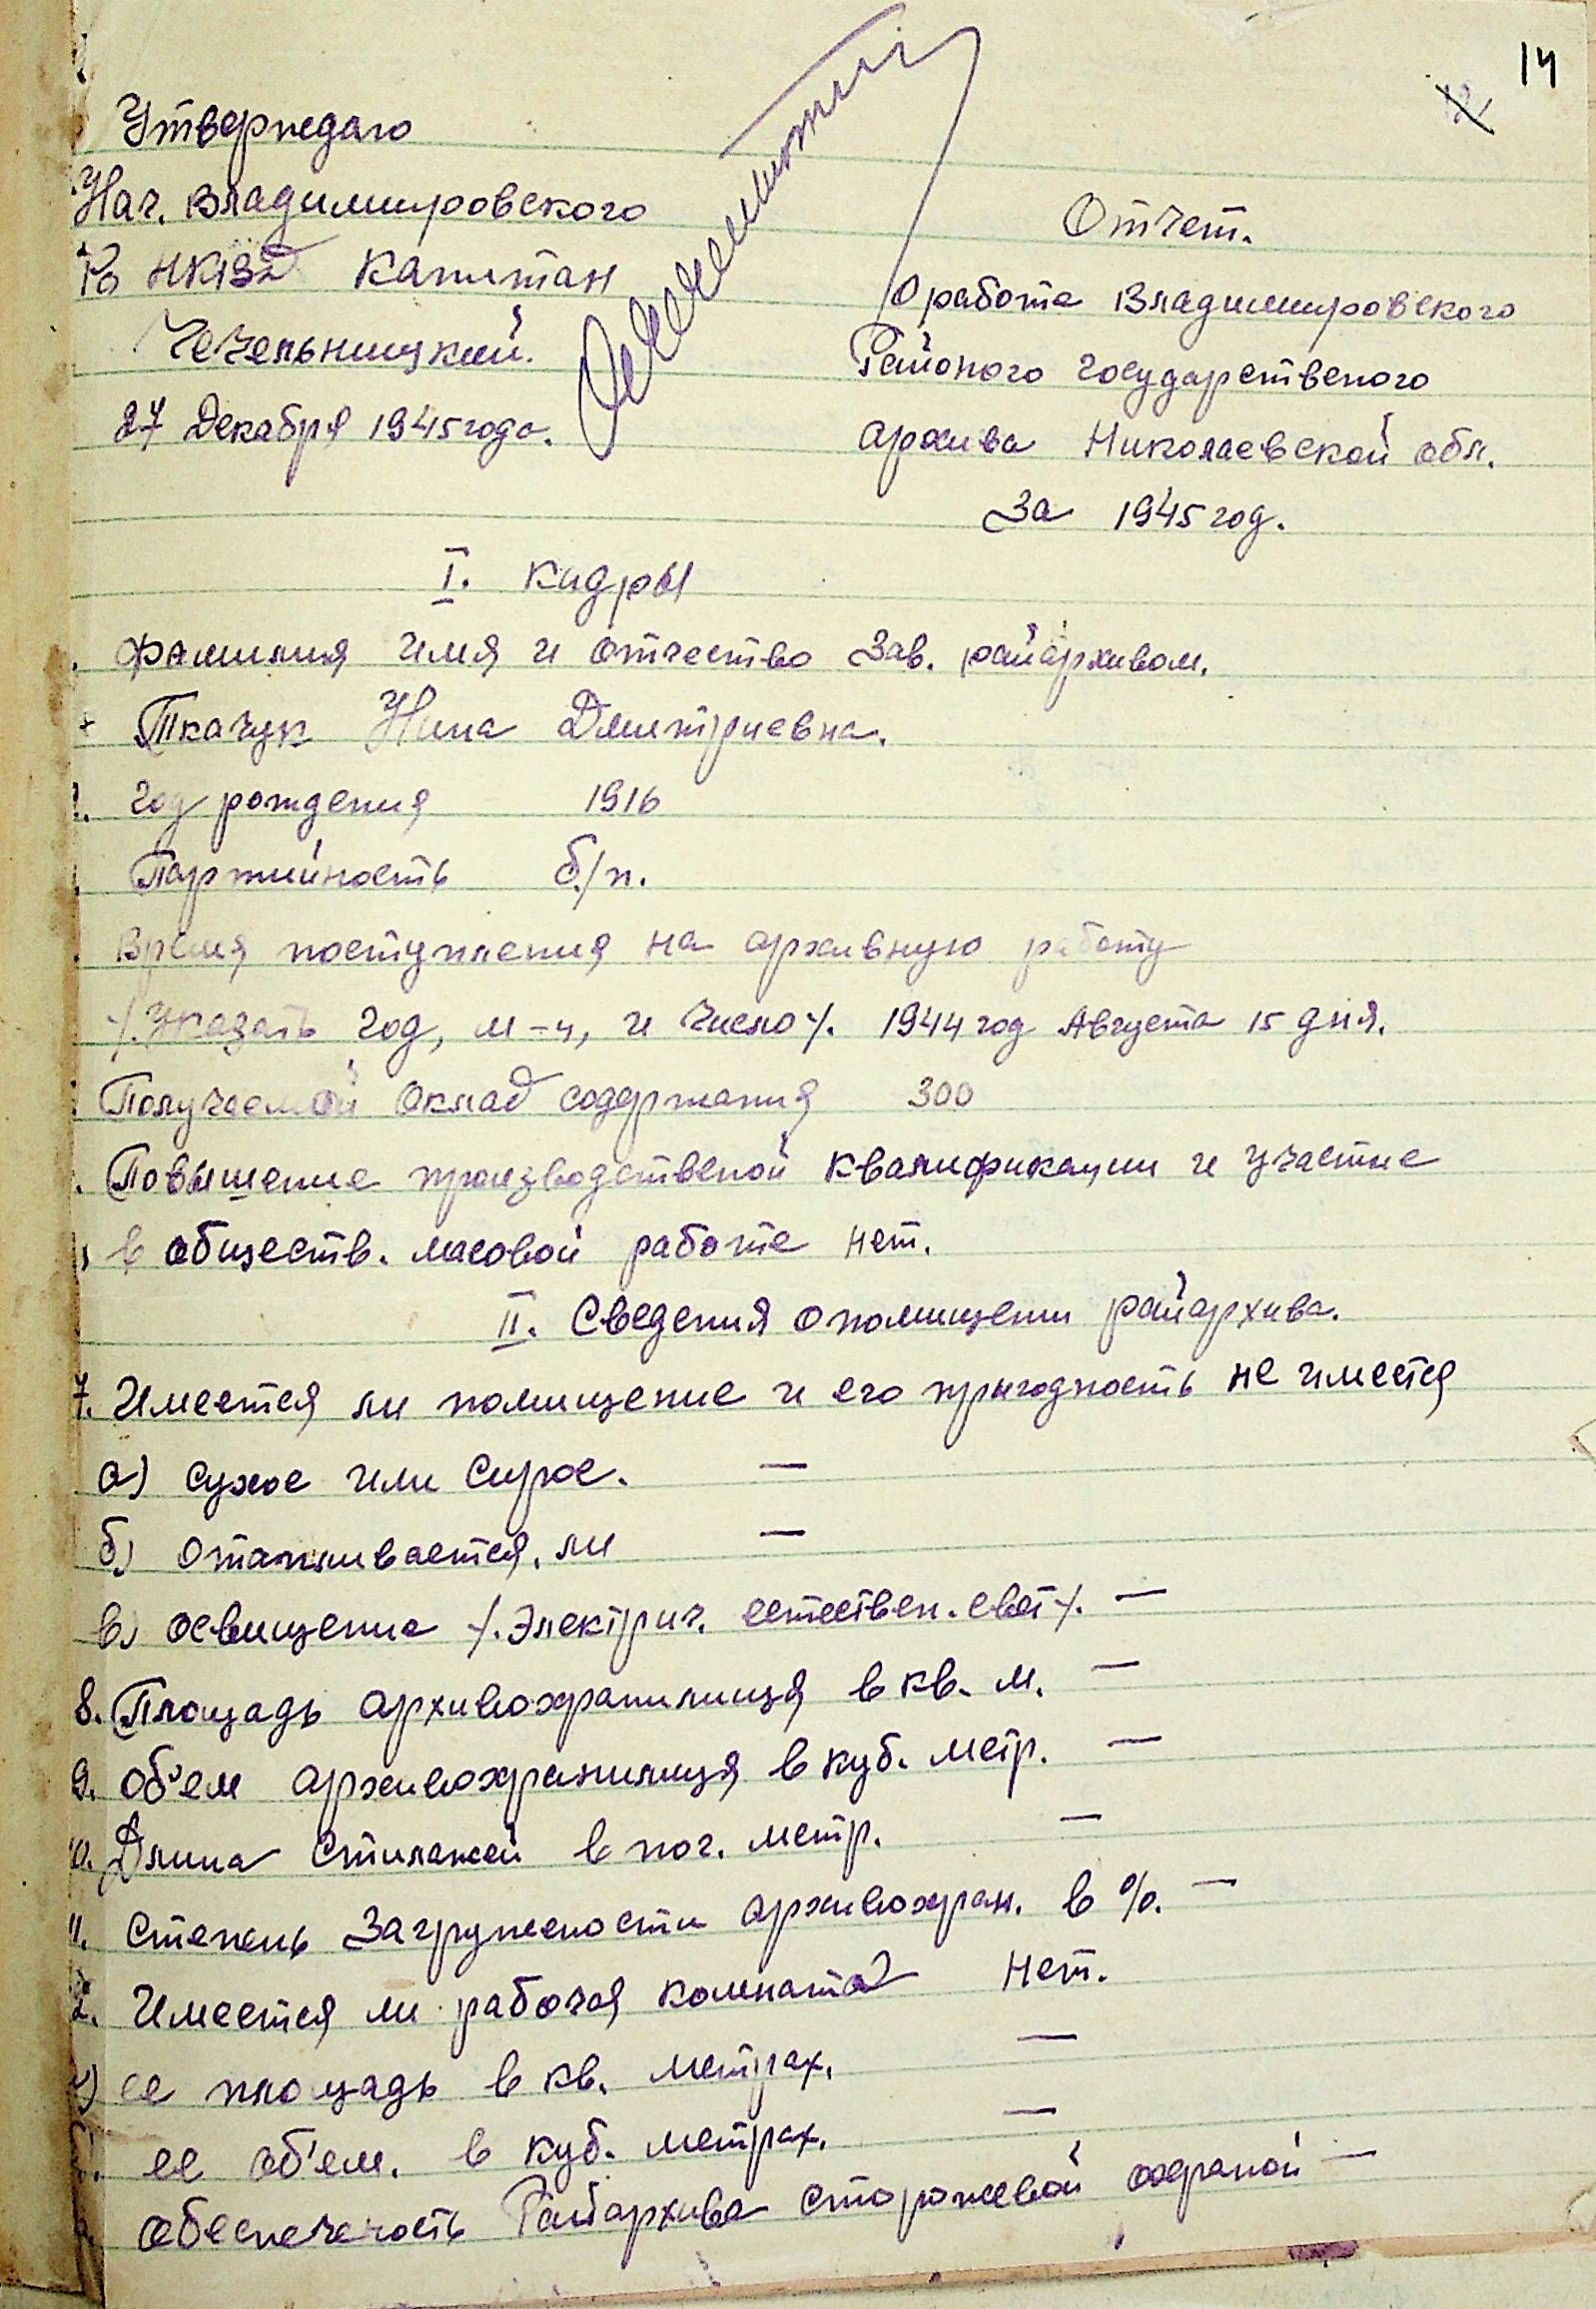 14
Утверждаю
Нач. Владимировского
РО НКВД Капитан
Чечельницкий.
27 Декабря 1945 года.
Отчет.
О работе Владимировского
Районого государственого
архива Николаевской обл.
За 1945 год.
I. Кадры
Фамилия имя и отчество Зав. райархивом.
Ткачук Нина Дмитриевна.
год рождения 1916
Партийность б/п.
Время поступления на архивную работу
/. Указать год, м-ц, и число/. 1944 год Августа 15 дня.
Получаемой Оклад содержания 300
Повышение производственой квалификации и участие
в обществ. масовой работе нет.
II. Сведения о помищении райархива.
7. Имеется ли помищение и его пригодность не имеется
а) сухое или сырое. —
б) отапливается, ли —
в) освищение /. Электрич. естествен. свет/. —
8. Площадь архивохранилища в кв. м. —
9. об'ем архивохранилища в куб. метр. —
10. Длина стилажей в пог. метр. —
11. степень Загружености архивохран. в %. —
2. Имеется ли рабочая комната нет.
а) ее площадь в кв. метрах. —
б. ее об'ем. в куб. метрах. —
обеспеченость Райархива сторожевой охраной —